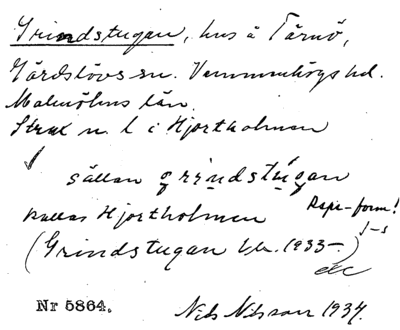 Grindstugan, hus å Tärnö,
Gärdslövs sn. Vemmenhögs hd.
Malmöhus län.
Strax n. l i Hjortholmen
sällan grindstúgan
kallas Hjortholmen Pape-form!
(Grindstugan bk. 1933-.) J-s
Nr 5864. Nils Nilsson 1934.